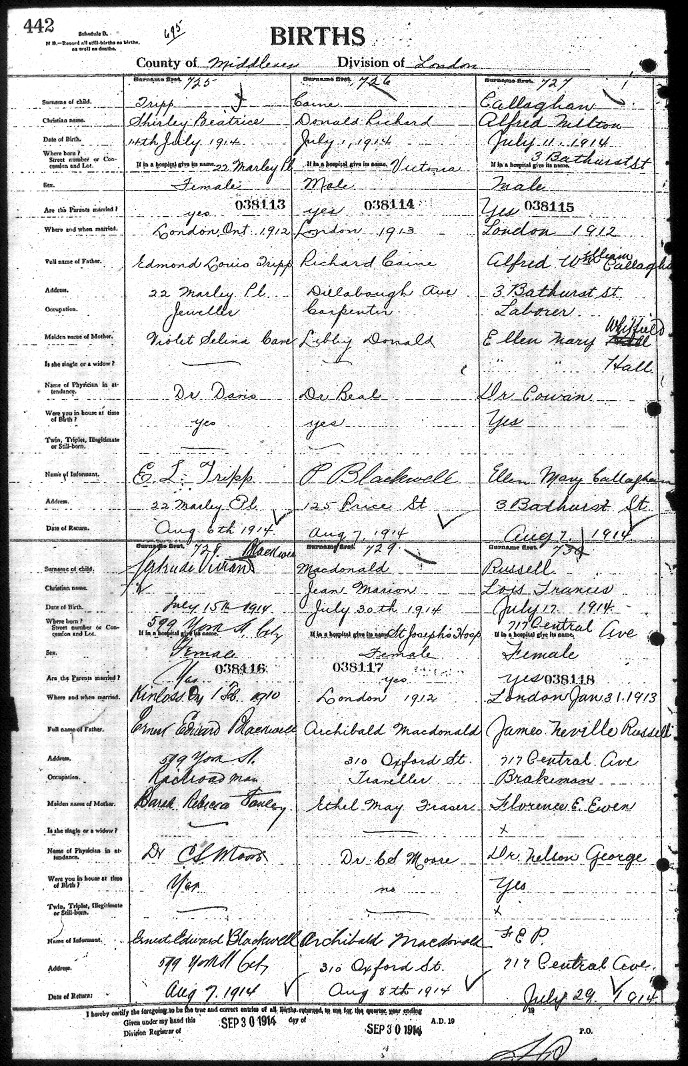 442
Schedule B.
N B.—Record all still-births as births, as well as deaths.
695
BIRTHS
County of Middlesex Division of London
Surname first. 725 Surname first. 726 Surname first. 727
Surname of child. Tripp Caine Callaghan
Christian name. Shirley Beatrice Donald Richard Alfred Milton
Date of Birth. 14th July 1914 July 1, 1914 July 11 1914
Where born? 3 Bathurst St
Street number or Concession and Lot. If in a hospital give its name. 22 Marley Pl If in a hospital give its name. Victoria If in a hospital give its name.
Sex. Female Male Male
Are the Parents married? yes 038113 yes 038114 Yes 038115
Where and when married. London Ont 1912 London 1913 London 1912
Full name of Father. Edmond Louis Tripp Richard Caine Alfred William Callaghan
Address. 22 Marley Pl. Dillabough Ave 3 Bathurst St
Occupation. Jeweller Carpenter Laborer
Maiden name of Mother. Violet Selina Libby Donald Ellen Mary Whitfield
Is she single or a widow? Hall
Name of Physician in attendance. Dr Davis Dr Beal Dr Cowan
Were you in house at time of Birth? yes yes Yes
Twin, Triplet, Illegitimate or Still-born.
Name of Informant. E. L. Tripp P Blackwell Ellen Mary Callaghan
Address. 22 Marley Pl. 125 Price St 3 Bathurst St
Date of Return. Aug 6th 1914 Aug 7, 1914 Aug 7, 1914
Surname first. 728 Blackwell Surname first. 729 Surname first. 730
Surname of child. Gertrude Vivian Macdonald Russell
Christian name. Jean Marion Lois Frances
Date of Birth. July 15th 1914 July 30th 1914 July 17 1914
Where born? 599 York St. City 717 Central Ave
Street number or Concession and Lot. If in a hospital give its name. If in a hospital give its name. St Joseph's Hosp If in a hospital give its name.
Sex. Female Female Female
Are the Parents married? Yes 038116 038117 yes yes 038118
Where and when married. Kinloss 1910 London 1912 London Jan 31. 1913
Full name of Father. Ernest Edward Blackwell Archibald Macdonald James Neville Russell
Address. 599 York St. 310 Oxford St. 717 Central Ave
Occupation. Railroad man Traveller Brakeman
Maiden name of Mother. Sarah Rebecca Ethel May Fraser Florence E. Ewen
Is she single or a widow? x
Name of Physician in attendance. Dr C S Moore Dr C S Moore Dr Nelson George
Were you in house at time of Birth? Yes no Yes
Twin, Triplet, Illegitimate or Still-born. x
Name of Informant. Ernest Edward Blackwell Archibald Macdonald
Address. 599 York St City 310 Oxford St. 717 Central Ave.
Date of Return: Aug 7. 1914 Aug 8th 1914 July 29, 1914
I hereby certify the foregoing to be the true and correct entries of all Births returned to me for the quarter year ending 19
Given under my hand this SEP 30 1914 day of SEP 30 1914 A.D. 19
Division Registrar of P.O.